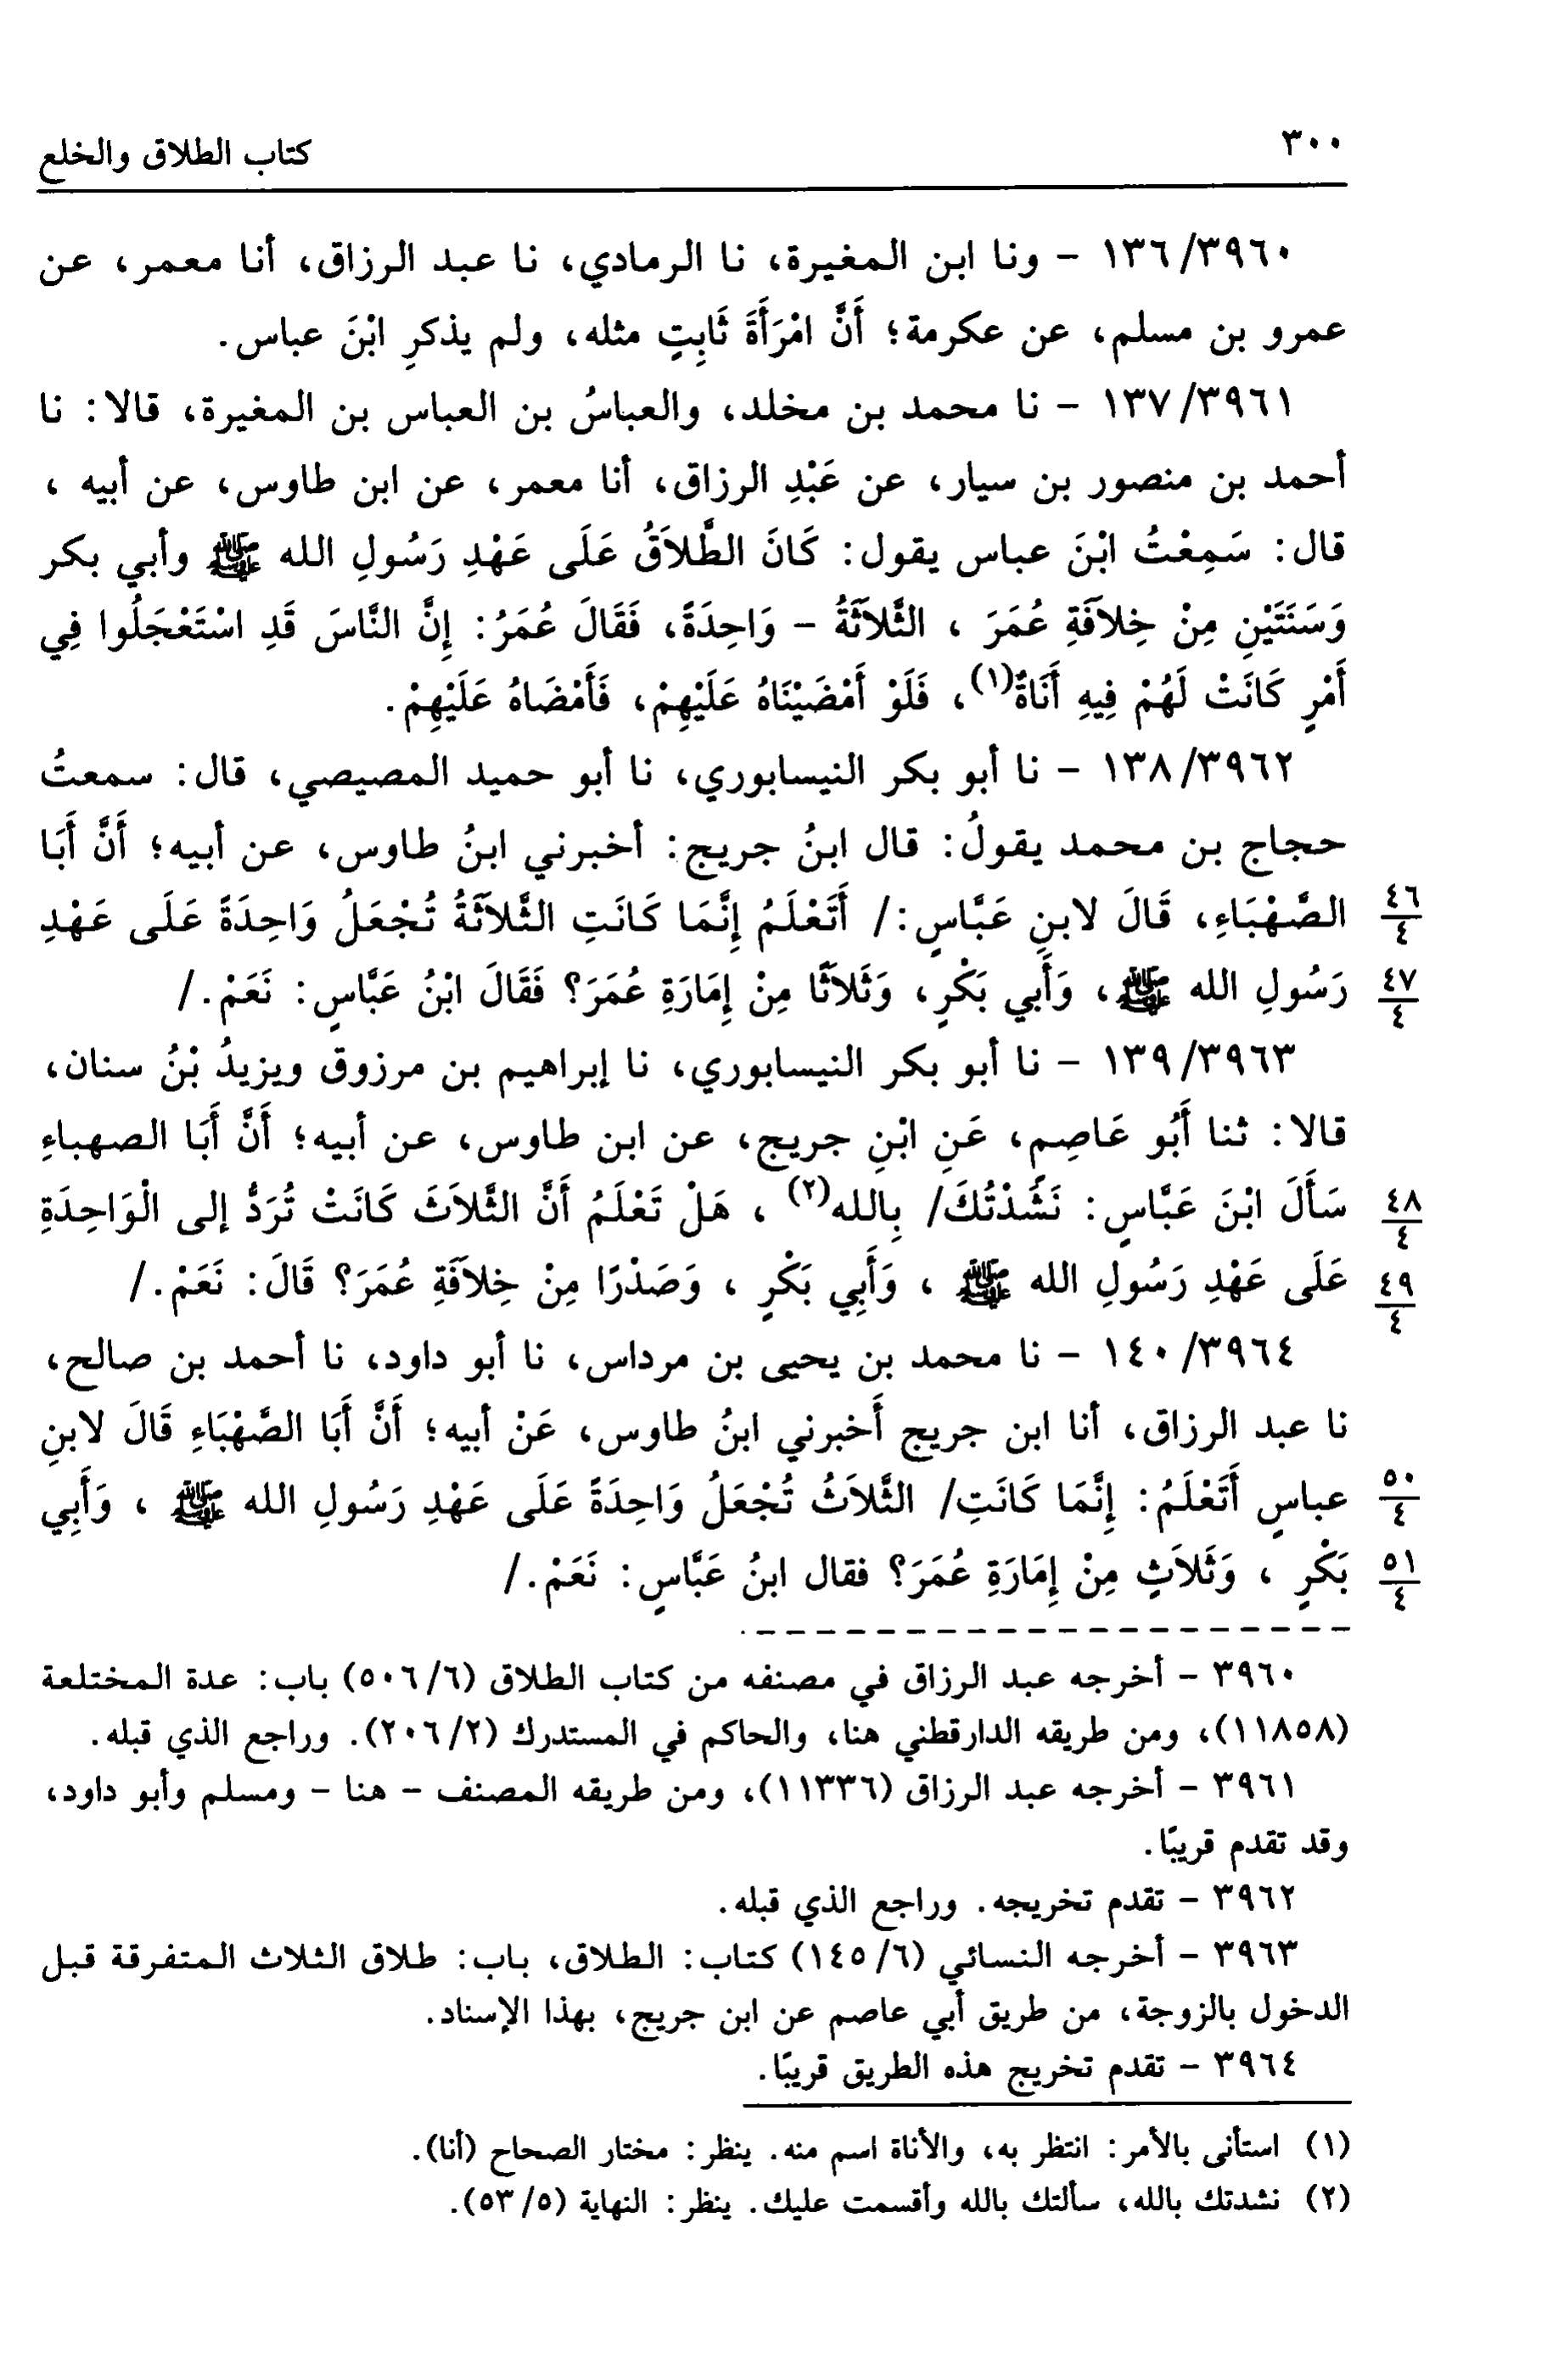 ٣٠٠
كتاب الطلاق والخلع
١٣٦/٣٩٦٠ - ونا ابن المغيرة، نا الرمادي، نا عبد الرزاق، أنا معمر، عن
عمرو بن مسلم، عن عكرمة؛ أَنَّ امْرَأَةَ ثَابِتٍ مثله، ولم يذكرِ ابْنَ عباس.
١٣٧/٣٩٦١ - نا محمد بن مخلد، والعباسُ بن العباس بن المغيرة، قالا: نا
أحمد بن منصور بن سيار، عن عَبْدِ الرزاق، أنا معمر، عن ابن طاوس، عن أبيه ،
قال: سَمِعْتُ ابْنَ عباس يقول: كَانَ الطَّلاَقُ عَلَى عَهْدِ رَسُولِ الله ﷺ وأبي بكر
وَسَنَتَيْنِ مِنْ خِلاَفَةِ عُمَرَ ، الثَّلاَثَةُ - وَاحِدَةً، فَقَالَ عُمَرُ: إِنَّ النَّاسَ قَدِ اسْتَعْجَلُوا فِي
أَمْرٍ كَانَتْ لَهُمْ فِيهِ أَنَاةٌ(١)، فَلَوْ أَمْضَيْنَاهُ عَلَيْهِمْ، فَأَمْضَاهُ عَلَيْهِمْ.
١٣٨/٣٩٦٢ - نا أبو بكر النيسابوري، نا أبو حميد المصيصي، قال: سمعتُ
حجاج بن محمد يقولُ: قال ابنُ جريج: أخبرني ابنُ طاوس، عن أبيه؛ أَنَّ أَبَا
الصَّهْبَاءِ، قَالَ لابنِ عَبَّاسٍ:/ أَتَعْلَمُ إِنَّمَا كَانَتِ الثَّلاَثَةُ تُجْعَلُ وَاحِدَةً عَلَى عَهْدِ
٤٦/٤
رَسُولِ الله ﷺ، وَأَبي بَكْرٍ، وَثَلاَثًا مِنْ إِمَارَةِ عُمَرَ؟ فَقَالَ ابْنُ عَبَّاسٍ: نَعَمْ./
٤٧/٤
١٣٩/٣٩٦٣ - نا أبو بكر النيسابوري، نا إبراهيم بن مرزوق ويزيدُ بْنُ سنان،
قالا: ثنا أَبُو عَاصِمٍ، عَنِ ابْنِ جريج، عن ابن طاوس، عن أبيه؛ أَنَّ أَبَا الصهباءِ
سَأَلَ ابْنَ عَبَّاسٍ: نَشَدْتُكَ/ بِالله(٢) ، هَلْ تَعْلَمُ أَنَّ الثَّلاَثَ كَانَتْ تُرَدُّ إلى الْوَاحِدَةِ
٤٨/٤
عَلَى عَهْدِ رَسُولِ الله ﷺ ، وَأَبِي بَكْرٍ ، وَصَدْرًا مِنْ خِلاَفَةِ عُمَرَ؟ قَالَ: نَعَمْ./
٤٩/٤
١٤٠/٣٩٦٤ - نا محمد بن يحيى بن مرداس، نا أبو داود، نا أحمد بن صالح،
نا عبد الرزاق، أنا ابن جريج أَخبرني ابنُ طاوس، عَنْ أبيه؛ أَنَّ أَبَا الصَّهْبَاءِ قَالَ لابنِ
عباسٍ أَتَعْلَمُ: إِنَّمَا كَانَتِ/ الثَّلاَثُ تُجْعَلُ وَاحِدَةً عَلَى عَهْدِ رَسُولِ الله ﷺ ، وَأَبِي
٥٠/٤
بَكْرٍ ، وَثَلاَثٍ مِنْ إِمَارَةِ عُمَرَ؟ فقال ابنُ عَبَّاسٍ: نَعَمْ./
٥١/٤
٣٩٦٠ - أخرجه عبد الرزاق في مصنفه من كتاب الطلاق (٥٠٦/٦) باب: عدة المختلعة
(١١٨٥٨)، ومن طريقه الدارقطني هنا، والحاكم في المستدرك (٢٠٦/٢). وراجع الذي قبله.
٣٩٦١ - أخرجه عبد الرزاق (١١٣٣٦)، ومن طريقه المصنف - هنا - ومسلم وأبو داود،
وقد تقدم قريبًا.
٣٩٦٢ - تقدم تخريجه. وراجع الذي قبله.
٣٩٦٣ - أخرجه النسائي (١٤٥/٦) كتاب: الطلاق، باب: طلاق الثلاث المتفرقة قبل
الدخول بالزوجة، من طريق أبي عاصم عن ابن جريج، بهذا الإسناد.
٣٩٦٤ - تقدم تخريج هذه الطريق قريبًا.
(١) استأنى بالأمر: انتظر به، والأناة اسم منه. ينظر: مختار الصحاح (أنا).
(٢) نشدتك بالله، سألتك بالله وأقسمت عليك. ينظر: النهاية (٥٣/٥).